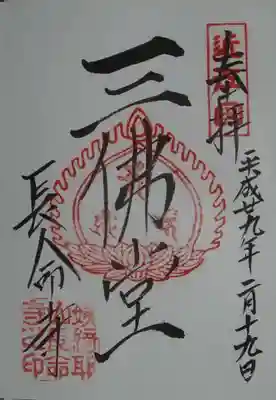 奉拝
平成廿九年二月十九日
三佛堂
長命寺